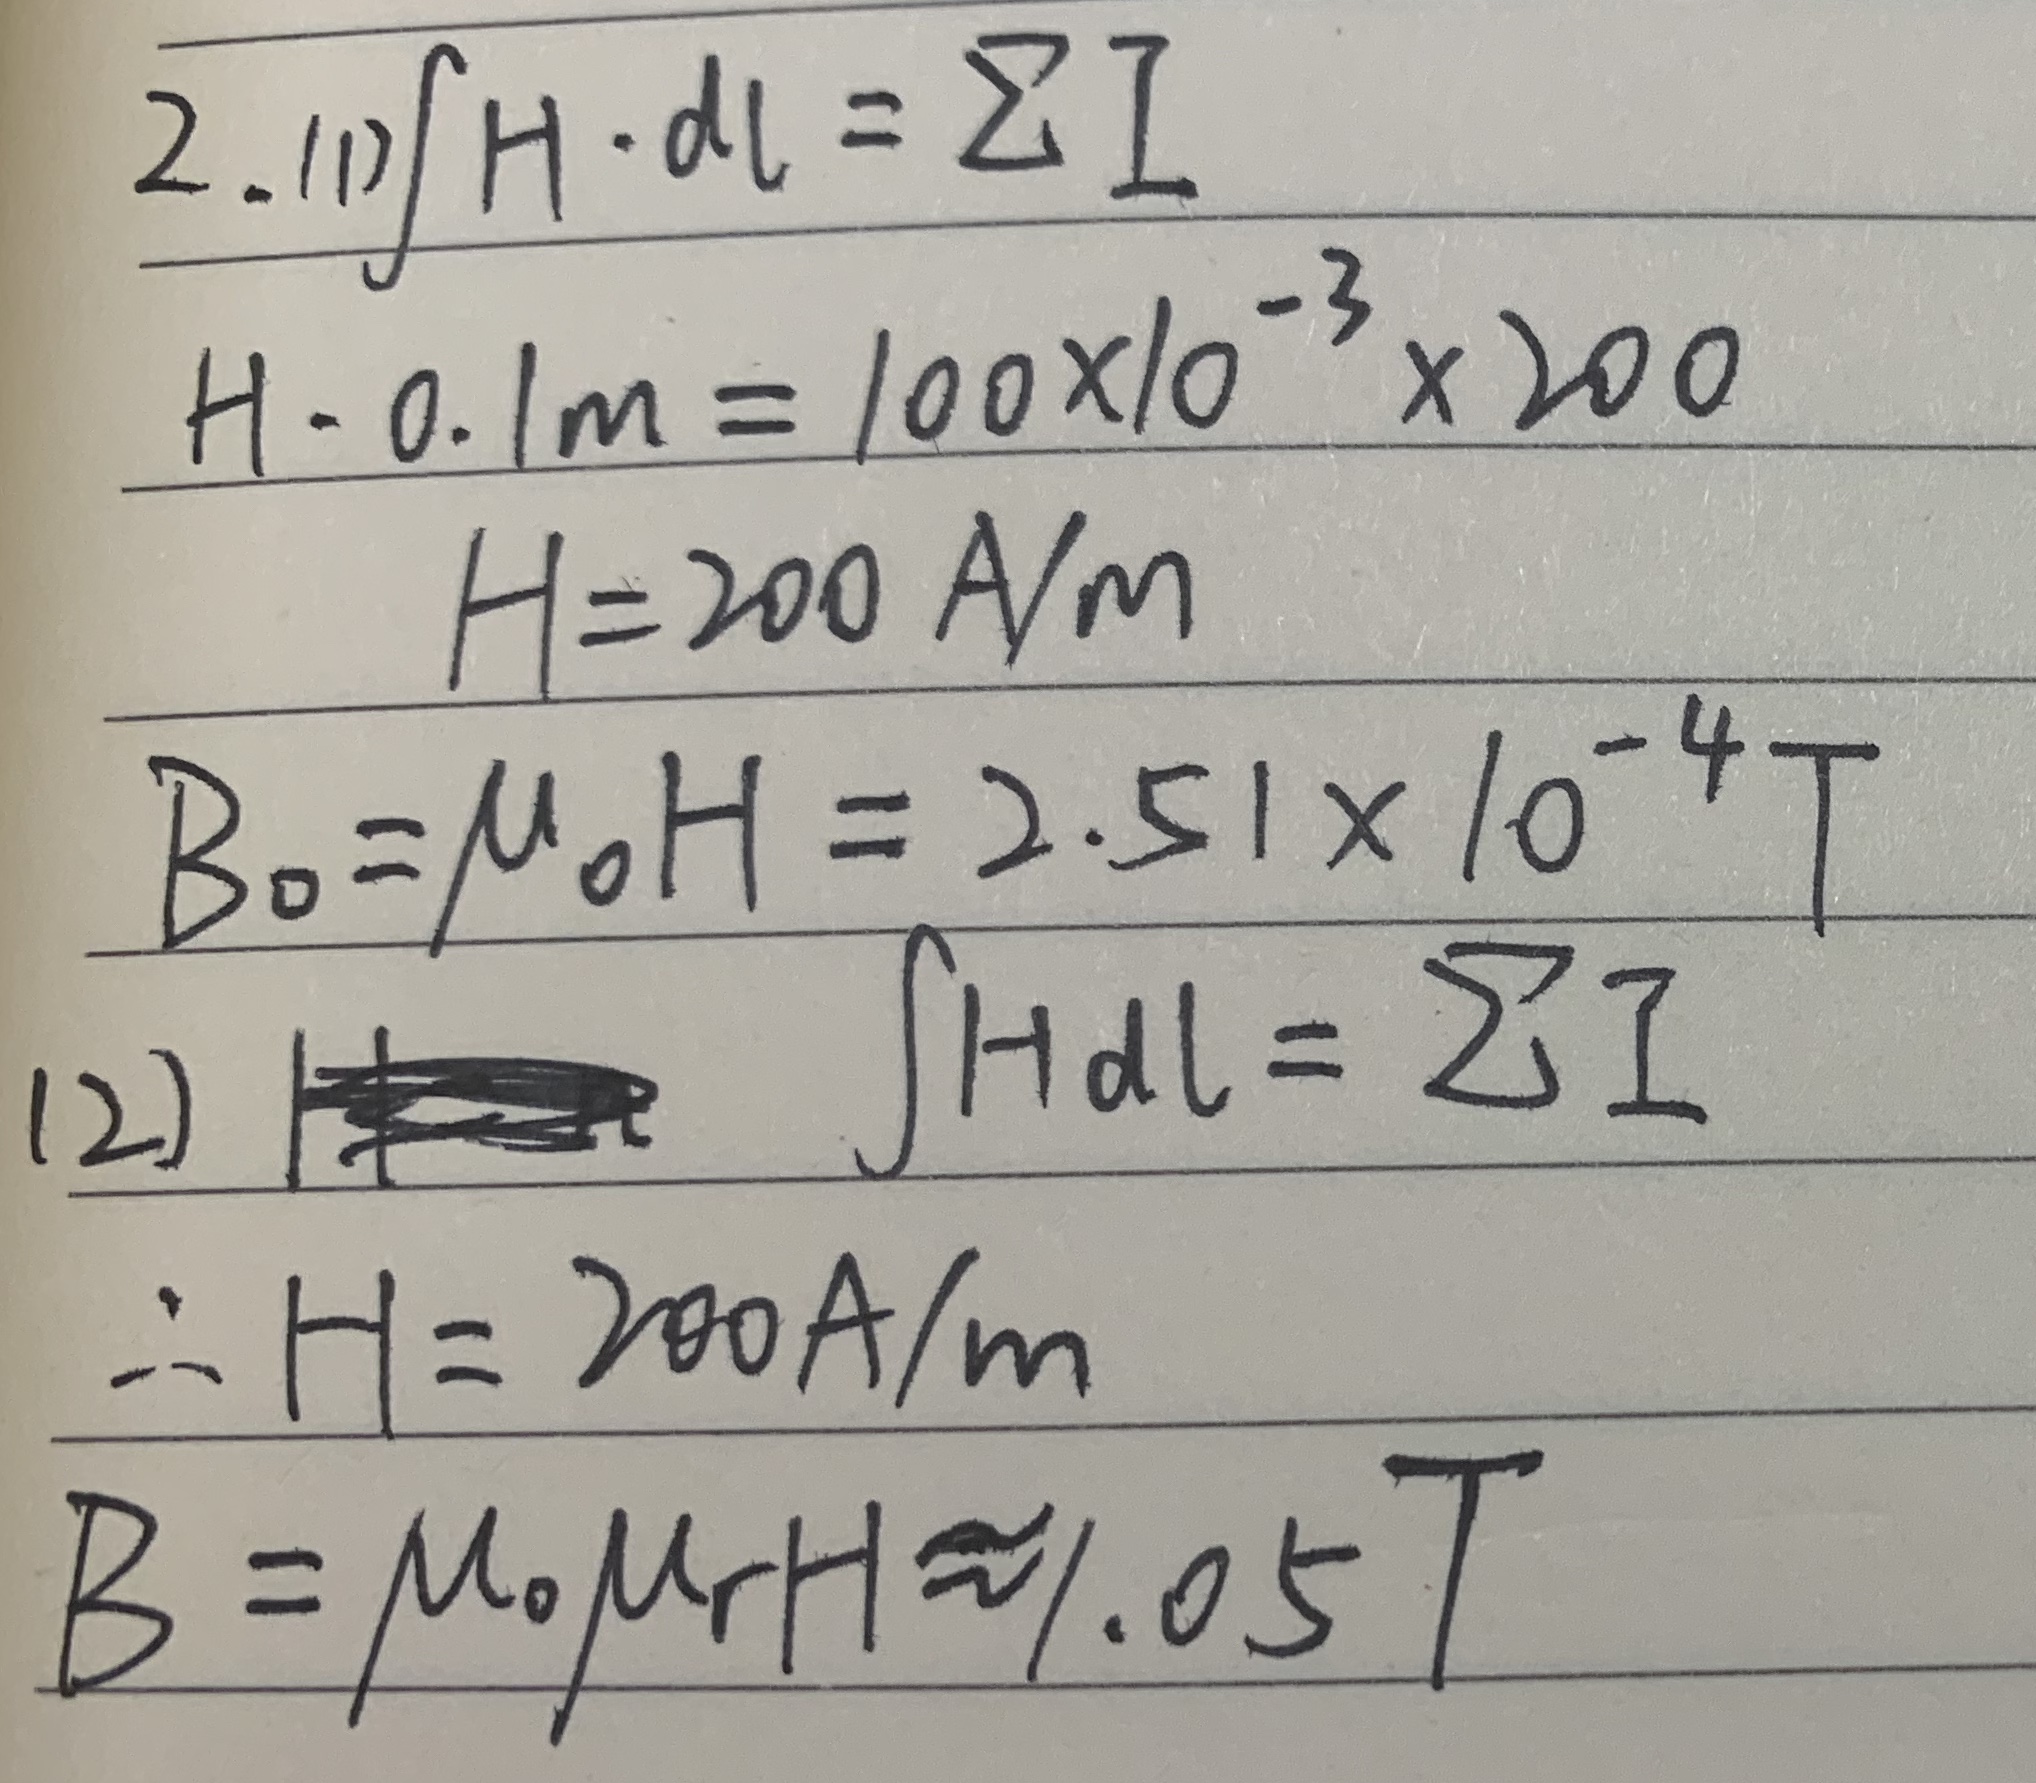 2.(1) ∫H·dl = ΣI
H·0.1m = 100×10⁻³×200
H=200 A/m
B₀=μ₀H = 2.51×10⁻⁴T
(2) ∫Hdl = ΣI
∴ H = 200A/m
B = μ₀μᵣH≈1.05T